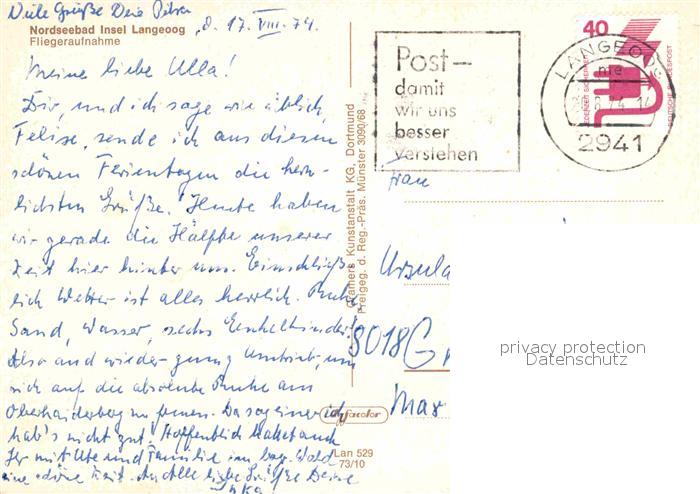 Viele Grüße Deine Petra
Nordseebad Insel Langeoog
Fliegeraufnahme
d. 17. VIII. 74
Meine liebe Ulla!
Dir, und ich sage wie üblich,
Felix, sende ich aus diesen
schönen Ferientagen die herz-
lichsten Grüße. Heute haben
wir gerade die Hälfte unserer
Zeit hier hinter uns. Einschließ-
lich Wetter ist alles herrlich. Ruhe
Sand, Wasser, sechs Enkelkinder!
Also ab und wieder genug Umtrieb, um
sich auf die absolute Ruhe am
zu freuen. Da sag einer ich
hab's nicht gut. Hoffentlich habt auch
Ihr mit Ute und Familie im bay. Wald
eine schöne Zeit. An Alle liebe Grüße Deine
Cramers Kunstanstalt KG, Dortmund
Freigeg. d. Reg.-Präs. Münster 3090/68
color
Lan 529
73/10
Post-
damit
wir uns
besser
verstehen
40
JEDERZEIT SICHERHEIT
DEUTSCHE BUNDESPOST
LANGEOOG
2941
Frau
Ursula
8018 G
Mar
privacy protection
Datenschutz